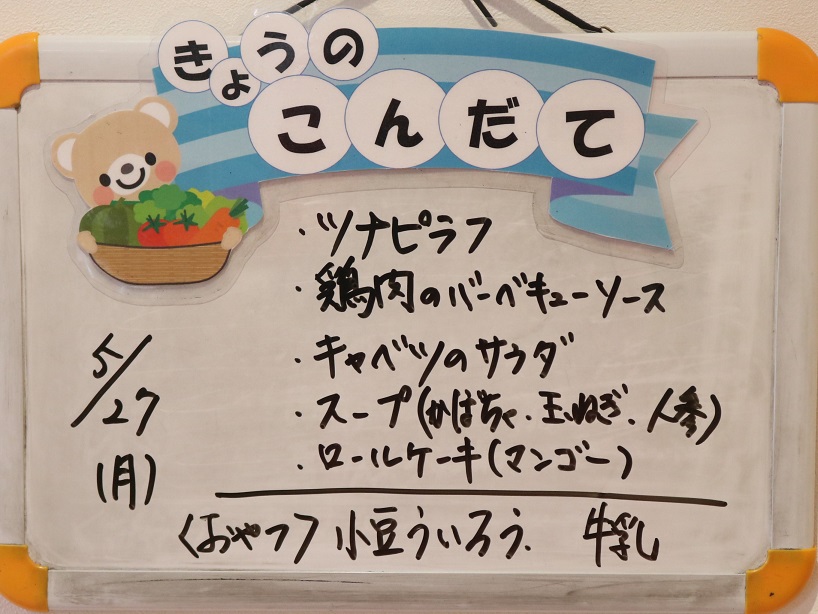 きょうの
こんだて
・ツナピラフ
・鶏肉のバーベキューソース
・キャベツのサラダ
・スープ(かぼちゃ、玉ねぎ、人参)
・ロールケーキ(マンゴー)
5/27
(月)
〈おやつ〉小豆ういろう、牛乳